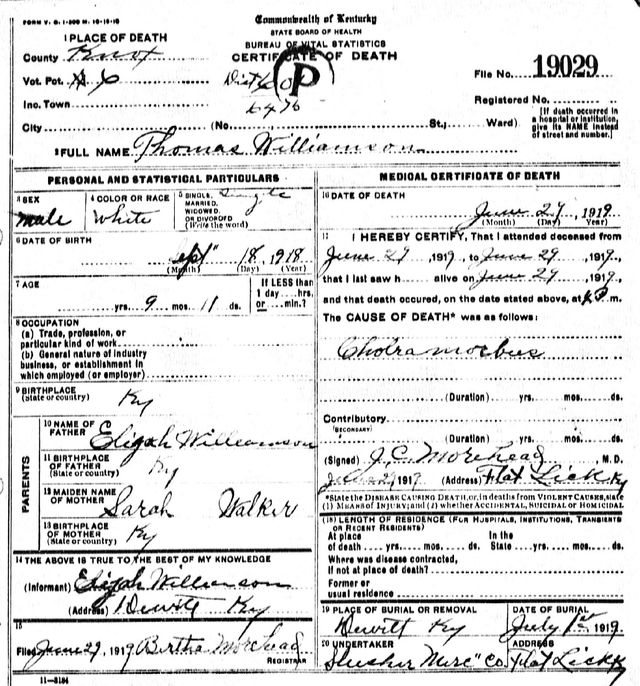 FORM V. S. 1-300 M. 10-10-10
Commonwealth of Kentucky
STATE BOARD OF HEALTH
BUREAU OF VITAL STATISTICS
CERTIFICATE OF DEATH
1 PLACE OF DEATH
County Knox
Vot. Pot. 6
Inc. Town
Dist
6476
P
File No. 19029
Registered No.
City (No. St., Ward)
[If death occurred in a hospital or institution, give its NAME instead of street and number.]
2 FULL NAME Thomas Williamson
PERSONAL AND STATISTICAL PARTICULARS
3 SEX
male
4 COLOR OR RACE
White
5 SINGLE, MARRIED, WIDOWED OR DIVORCED (Write the word)
Single
6 DATE OF BIRTH
Sept 18, 1918
(Month) (Day) (Year)
7 AGE
yrs. 9 mos. 11 ds.
If LESS than 1 day hrs. or min.?
8 OCCUPATION
(a) Trade, profession, or particular kind of work
(b) General nature of industry business, or establishment in which employed (or employer)
9 BIRTHPLACE
(State or country)
Ky
PARENTS
10 NAME OF FATHER
Elijah Williamson
11 BIRTHPLACE OF FATHER
(State or country)
Ky
12 MAIDEN NAME OF MOTHER
Sarah Walker
13 BIRTHPLACE OF MOTHER
(State or country)
Ky
14 THE ABOVE IS TRUE TO THE BEST OF MY KNOWLEDGE
(Informant) Elijah Williamson
(Address) Dewitt Ky
15
Filed June 29, 1919 Bertha Morehead
REGISTRAR
11-3184
MEDICAL CERTIFICATE OF DEATH
16 DATE OF DEATH
June 29, 1919
(Month) (Day) (Year)
17 I HEREBY CERTIFY, That I attended deceased from
June 27, 1919, to June 29, 1919,
that I last saw h alive on June 29, 1919,
and that death occured, on the date stated above, at P m.
The CAUSE OF DEATH* was as follows:
Cholra morbus
(Duration) yrs. mos. ds.
Contributory
(SECONDARY)
(Duration) yrs. mos. ds.
(Signed) J. C. Morehead, M. D.
1919 (Address) Flat Lick Ky
*State the DISEASE CAUSING DEATH, or, in deaths from VIOLENT CAUSES, state
(1) MEANS OF INJURY; and (2) whether ACCIDENTAL, SUICIDAL or HOMICIDAL
(18) LENGTH OF RESIDENCE (FOR HOSPITALS, INSTITUTIONS, TRANSIENTS OR RECENT RESIDENTS)
At place of death yrs. mos. ds. In the State yrs. mos. ds.
Where was disease contracted, if not at place of death?
Former or usual residence
19 PLACE OF BURIAL OR REMOVAL
Dewitt Ky
DATE OF BURIAL
July 1st 1919
20 UNDERTAKER
Slusher Merc" Co.
ADDRESS
Flat Lick Ky